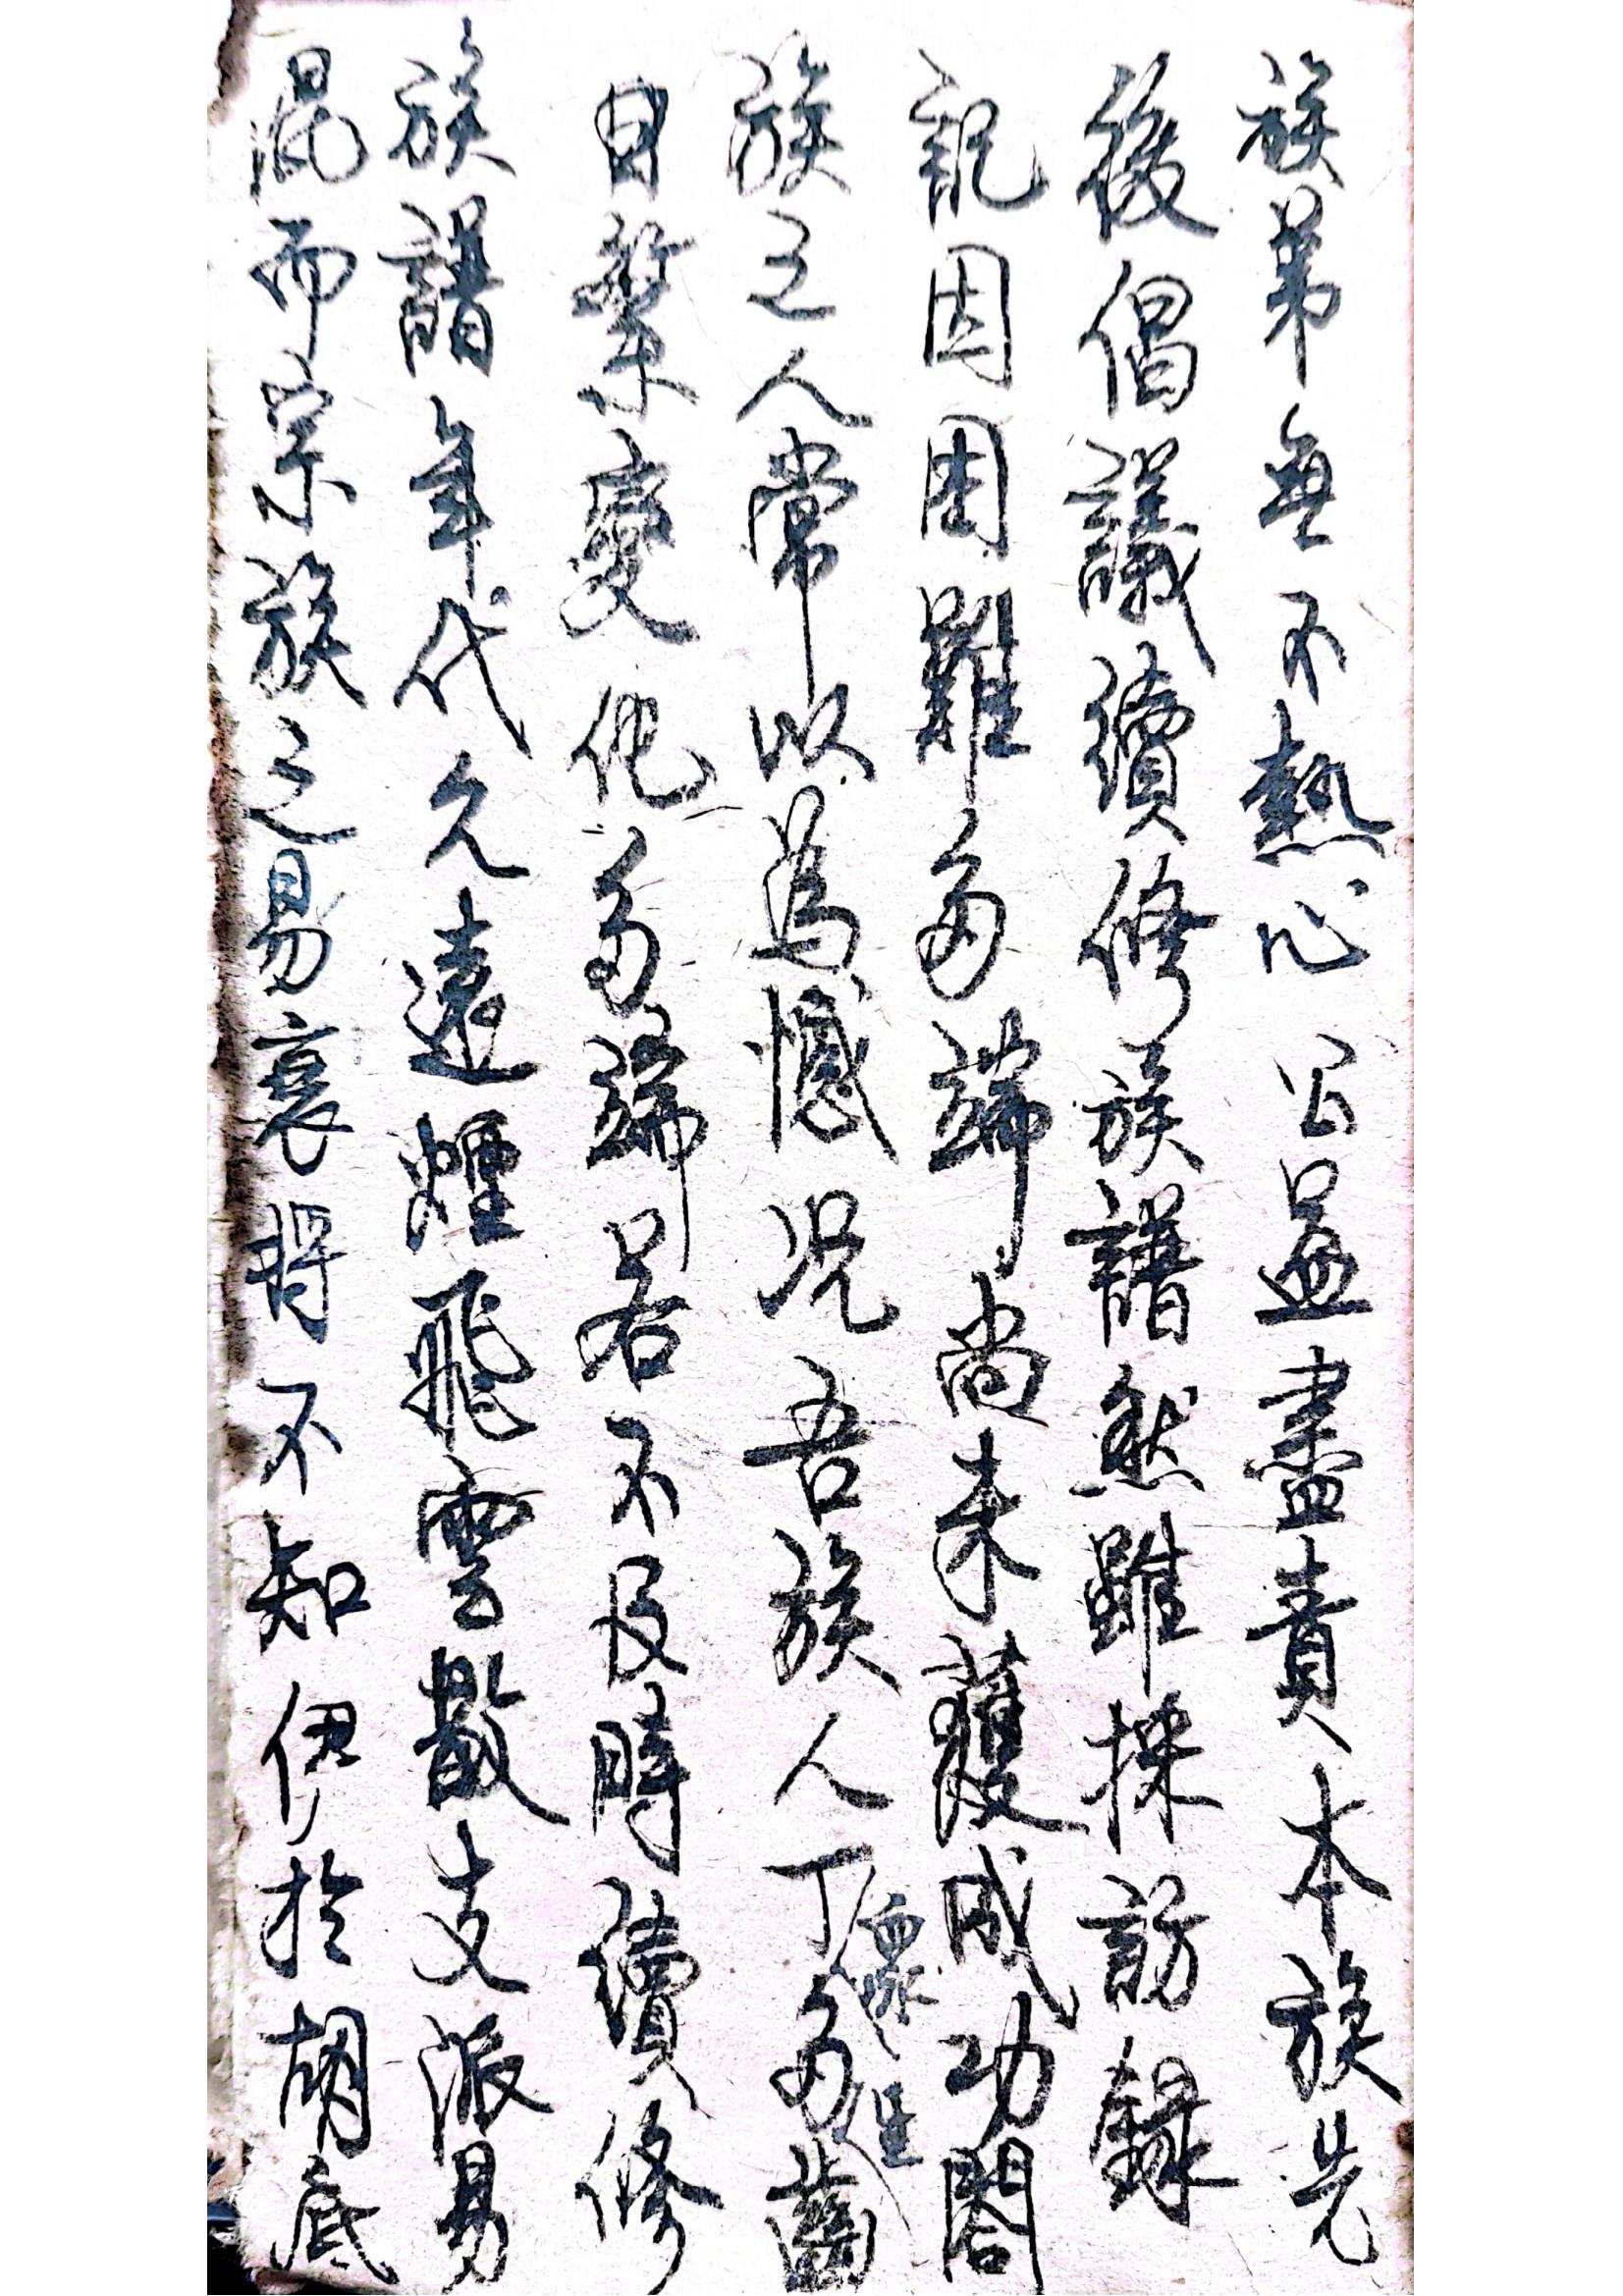 族弟無不熱心公益盡責本族先
後倡議續修族譜然雖採訪録
記因困難多端尚未蒦成功閤
族之人常以為憾况吾族人丁衆多生齒
日繁變化多端若不及時續修
族譜年代久遠煙飛雲散支派易
混而宗族之易衰將不知伊於胡底